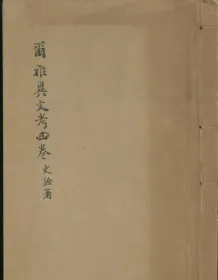 爾雅異文考四卷 史詮著